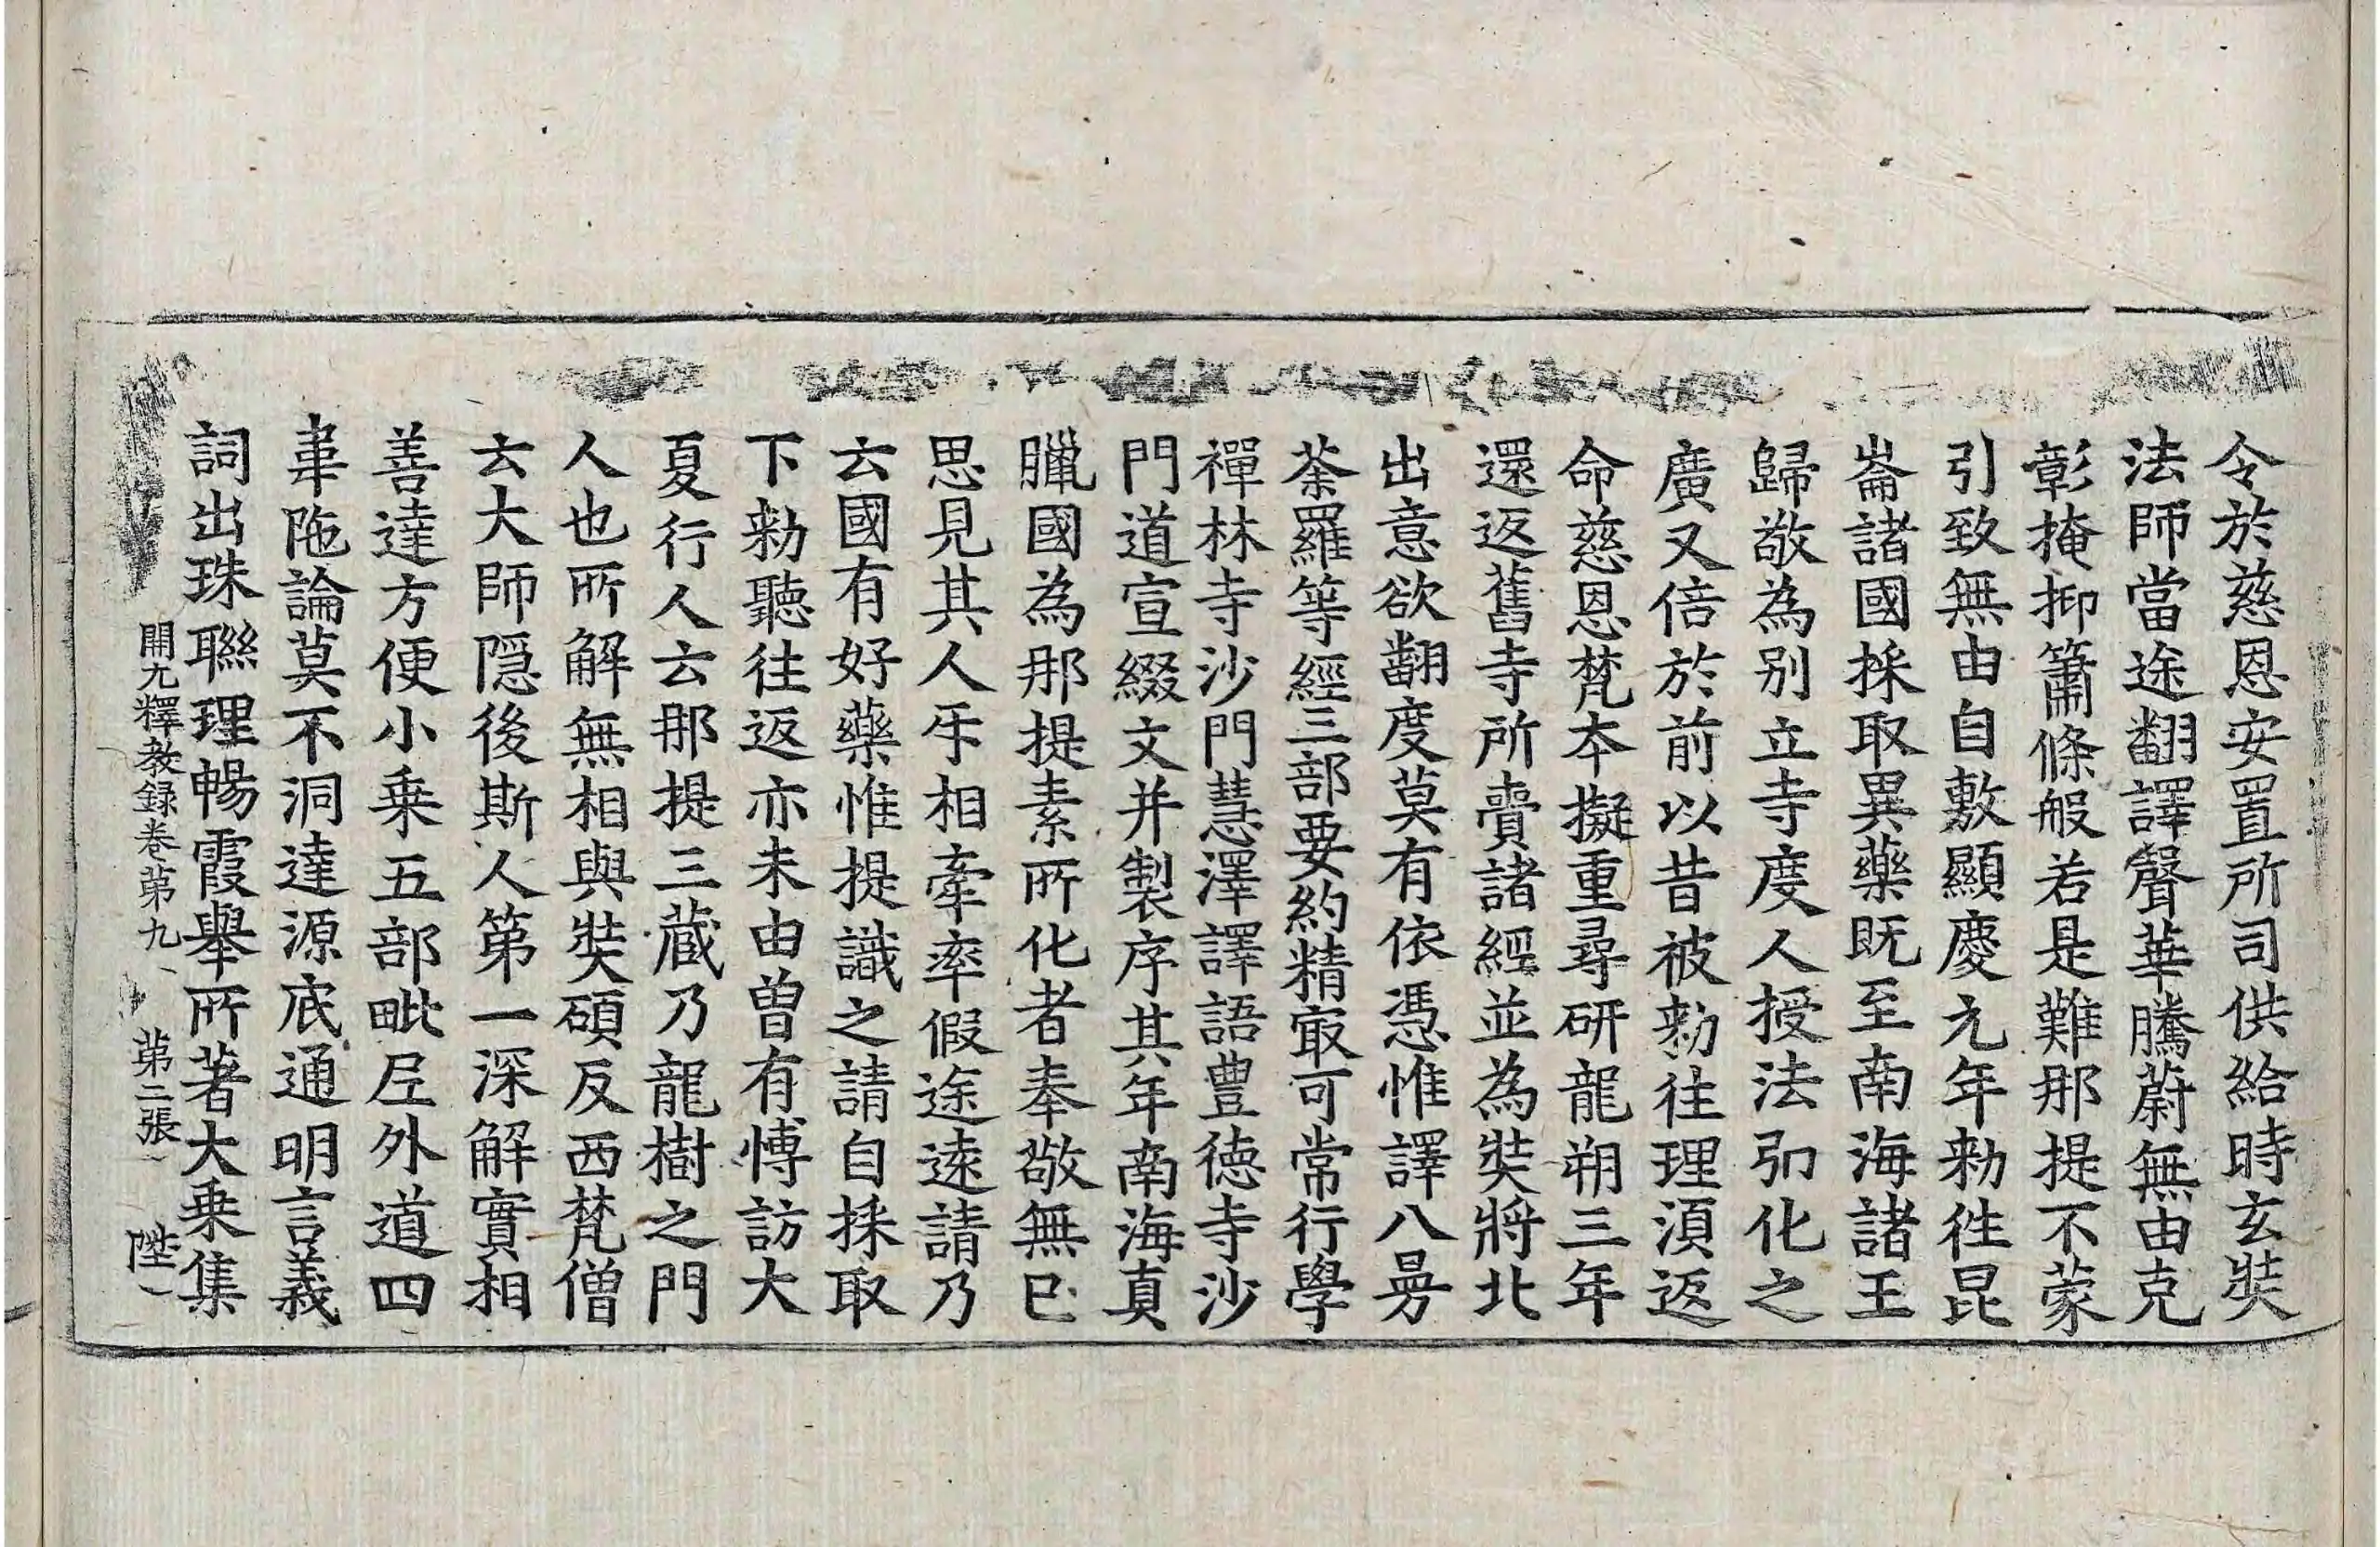 令於慈恩安置所司供給時玄奘
法師當途翻譯聲華騰蔚無由克
彰掩抑簫條般若是難那提不蒙
引致無由自敷顯慶元年勑往昆
崙諸國採取異藥既至南海諸王
歸敬為別立寺度人授法引化之
廣又倍於前以昔被勑往理湏返
命慈恩梵本擬重尋研龍朔三年
還返舊寺所賷諸經並為奘將北
出意欲翻度莫有依憑惟譯八曼
荼羅等經三部要約精㝡可常行學
禪林寺沙門慧澤譯語豊德寺沙
門道宣綴文并製序其年南海真
臘國為那提素所化者奉敬無已
思見其人㸦相牽率假途遠請乃
云國有好藥惟提識之請自採取
下勑聽往返亦未由曾有博訪大
夏行人云那提三藏乃龍樹之門
人也所解無相與奘碩反西梵僧
云大師隱後斯人第一深解實相
善達方便小乗五部毗𡰱外道四
韋陁論莫不洞達源底通明言義
詞出珠聯理暢霞舉所著大乗集
開元釋教録卷第九 第二張 陞